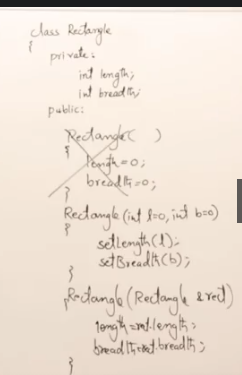 class Rectangle
{
private:
int length;
int breadth;
public:
Rectangle( )
{
length=0;
breadth=0;
}
Rectangle(int l=0, int b=0)
{
setLength(l);
setBreadth(b);
}
Rectangle(Rectangle &rect)
length=rect.length;
breadth=rect.breadth;
}